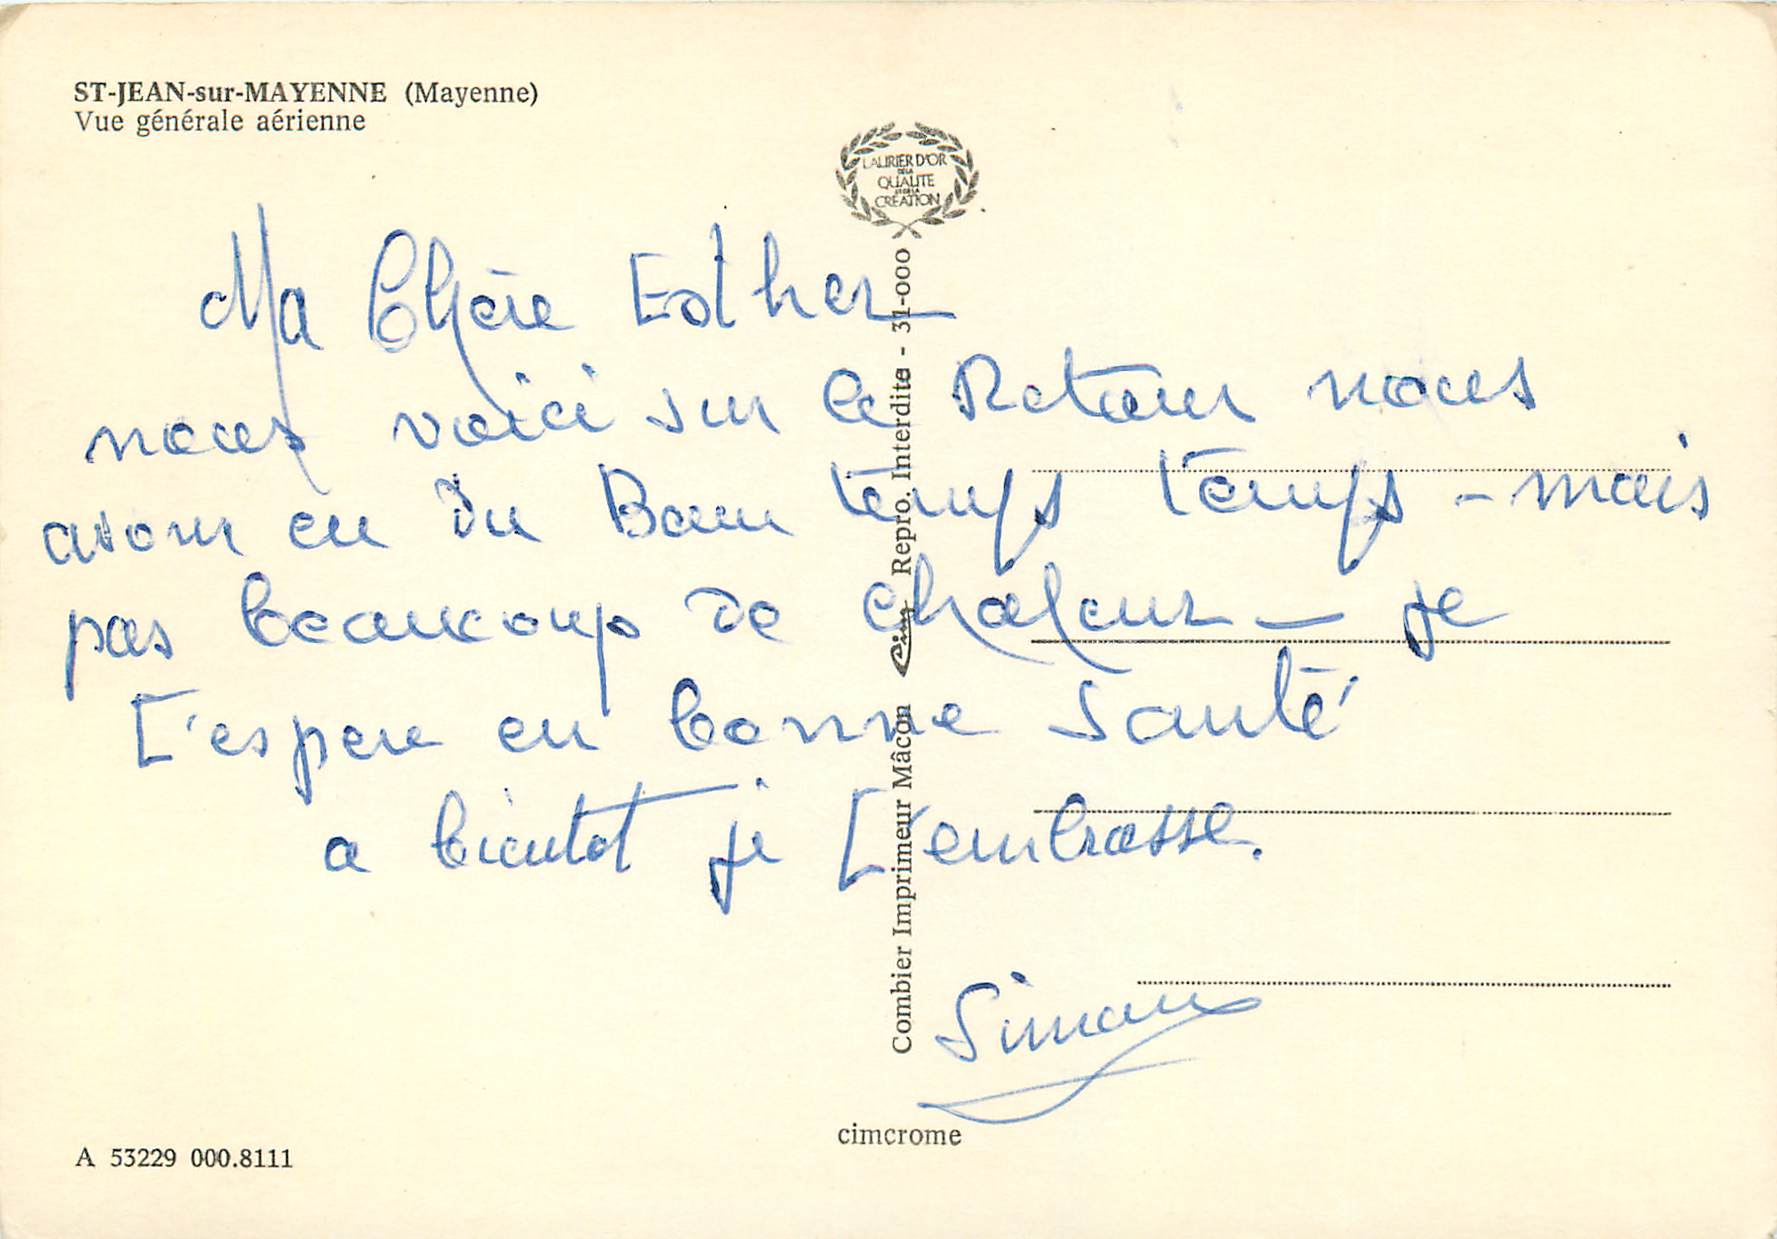 ST-JEAN-sur-MAYENNE (Mayenne)
Vue générale aérienne
LAURIER D'OR
DE LA
QUALITE
ET DE LA
CREATION
Ma Chère Esther
nous voici sur le Retour nous
avons eu du Beau temps temps - mais
pas beaucoup de chaleur - je
t'espere en bonne santé
a bientot je t'embrasse.
Simone
Combier Imprimeur Mâcon Cim Repro. Interdite - 31-000
cimcrome
A 53229 000.8111